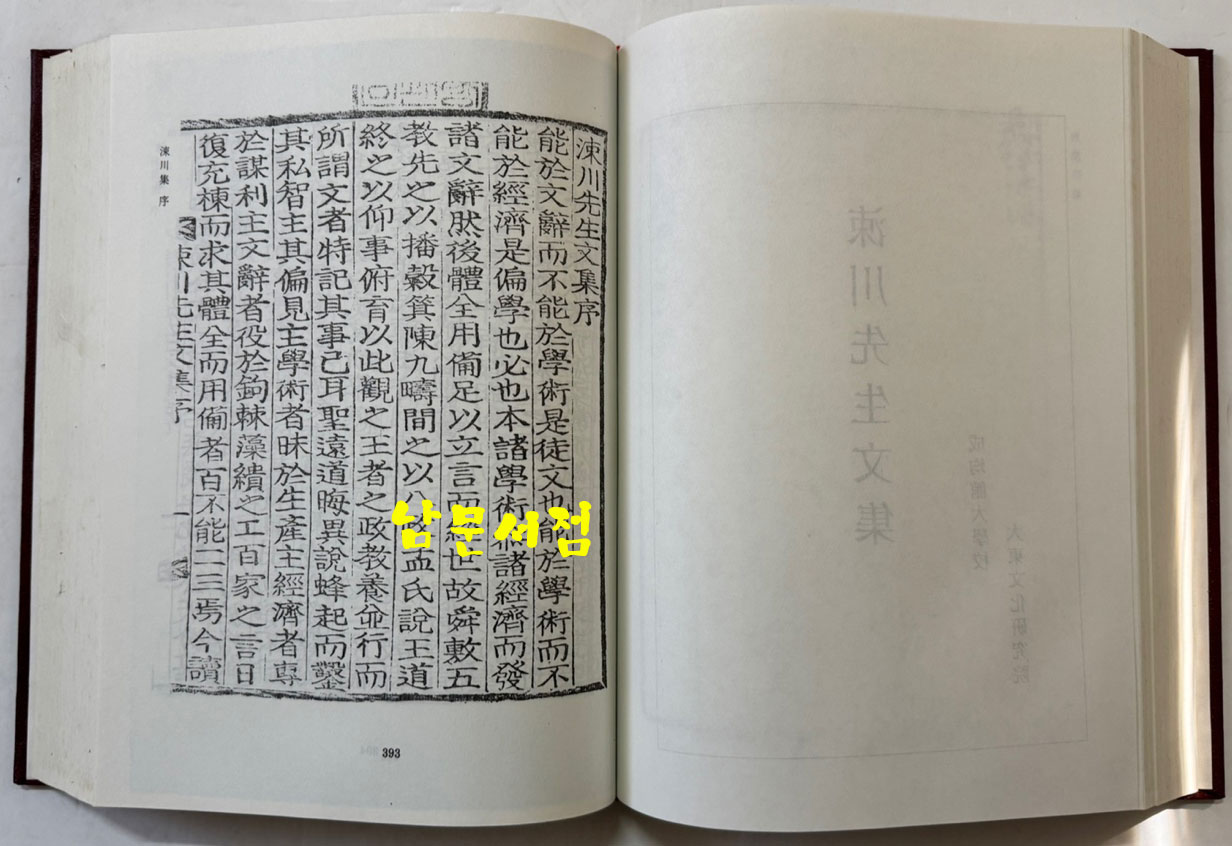 成均館大學校
大東文化硏究院
涑川先生文集
涑川先生文集序
能於文辭而不能於學術是徒文也能於學術而不
能於經濟是偏學也必也本諸學術諸經濟而發
諸文辭然後體全用備足以立言而經世故舜敷五
教先之以播穀箕陳九疇間之以八政孟氏說王道
終之以仰事俯育以此觀之王者之政教養並行而
所謂文者特記其事已耳聖遠道晦異說蜂起而鑿
其私智主其偏見主學術者昧於生產主經濟者專
於謀利主文辭者役於鉤棘藻繢之工百家之言日
復充棟而求其體全而用備者百不能二三焉今讀
涑川先生文集序
一
涑川集 序
393
남문서점